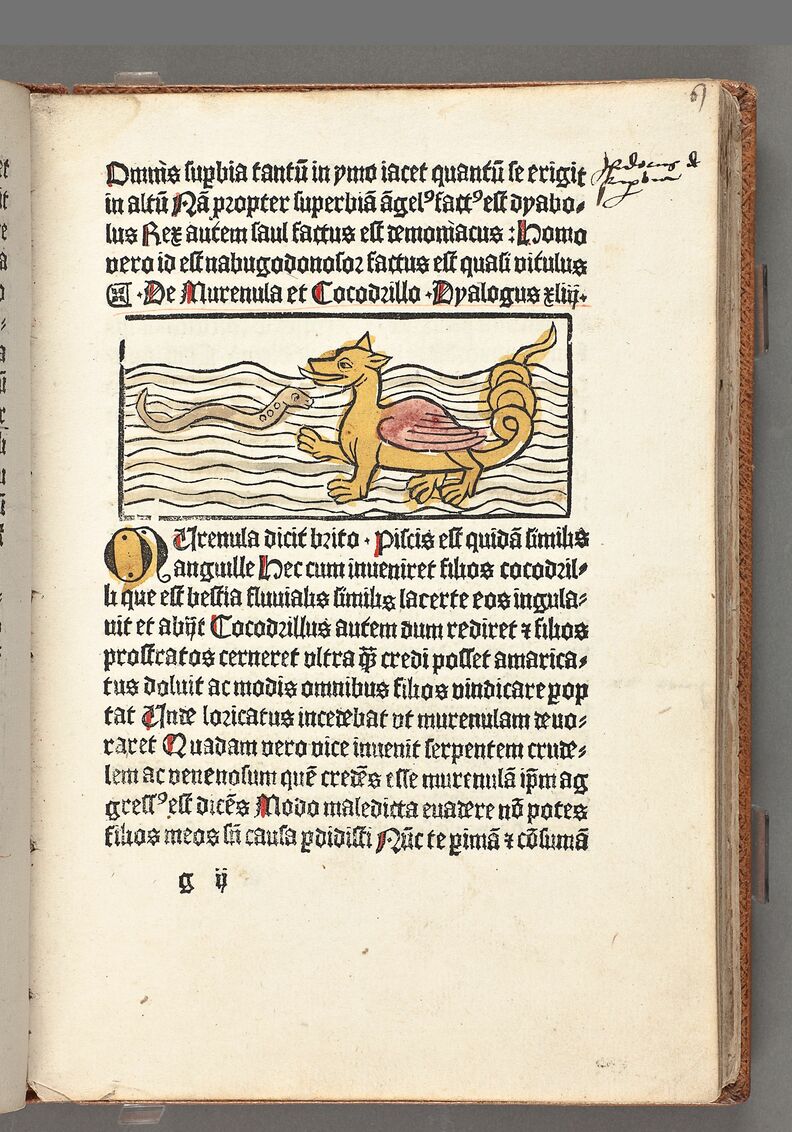 Omnis suꝑbia tantū in ymo iacet quantū se erigit
in altū Nā propter superbiā āgelꝰ factꝰ est dyabo⸗
lus Rex autem saul factus est demoniacus : Homo
vero id est nabugodonosor factus est quasi vitulus
De Murenula et Cocodrillo · Dyalogus xliij.
MUrenula dicit brito · Piscis est quidā similis
anguille Hec cum inueniret filios cocodril⸗
li que est bestia fluuialis similis lacerte eos iugula⸗
uit et abijt Cocodrillus autem dum rediret ⁊ filios
prostratos cerneret vltra ꝙ̄ credi posset amarica⸗
tus doluit ac modis omnibus filios vindicare ꝑop
tat Unde loricatus incedebat vt murenulam deuo⸗
raret Quadam vero vice inuenit serpentem crude⸗
lem ac venenosum quē credēs esse murenulā ip̄m ag
gressꝰ est dicēs Modo maledicta euadere nō potes
filios meos sū causa ꝑdidisti Nūc te ꝑimā ⁊ cōsumā
g ij